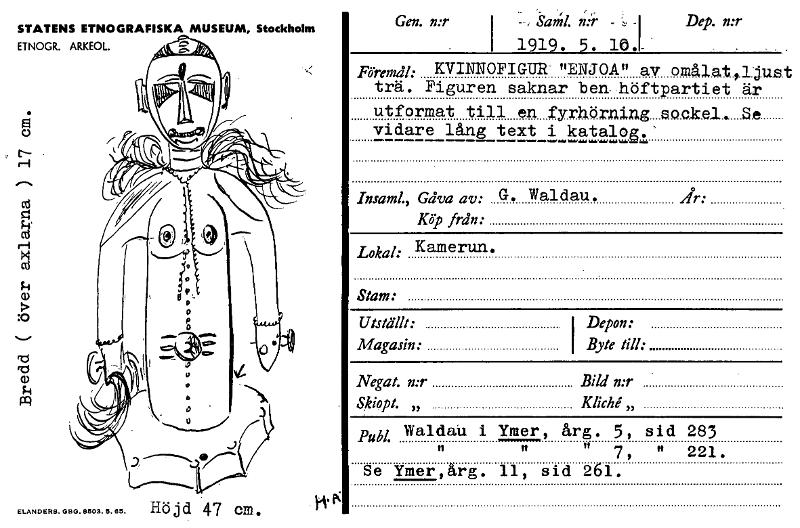 STATENS ETNOGRAFISKA MUSEUM, Stockholm
ETNOGR. ARKEOL.
Bredd ( över axlarna ) 17 cm.
ELANDERS. GBG. 8503. 5. 65.
Höjd 47 cm.
H.A
Gen. n:r
Saml. n:r
Dep. n:r
1919. 5. 10.
Föremål: KVINNOFIGUR "ENJOA" av omålat,ljust
trä. Figuren saknar ben höftpartiet är
utformat till en fyrhörning sockel. Se
vidare lång text i katalog.
Insaml., Gåva av: G. Waldau. År:
Köp från:
Lokal: Kamerun.
Stam:
Utställt: Depon:
Magasin: Byte till:
Negat. n:r Bild n:r
Skiopt. „ Kliché „
Publ. Waldau i Ymer, årg. 5, sid 283
" " " 7, " 221.
Se Ymer,årg. 11, sid 261.